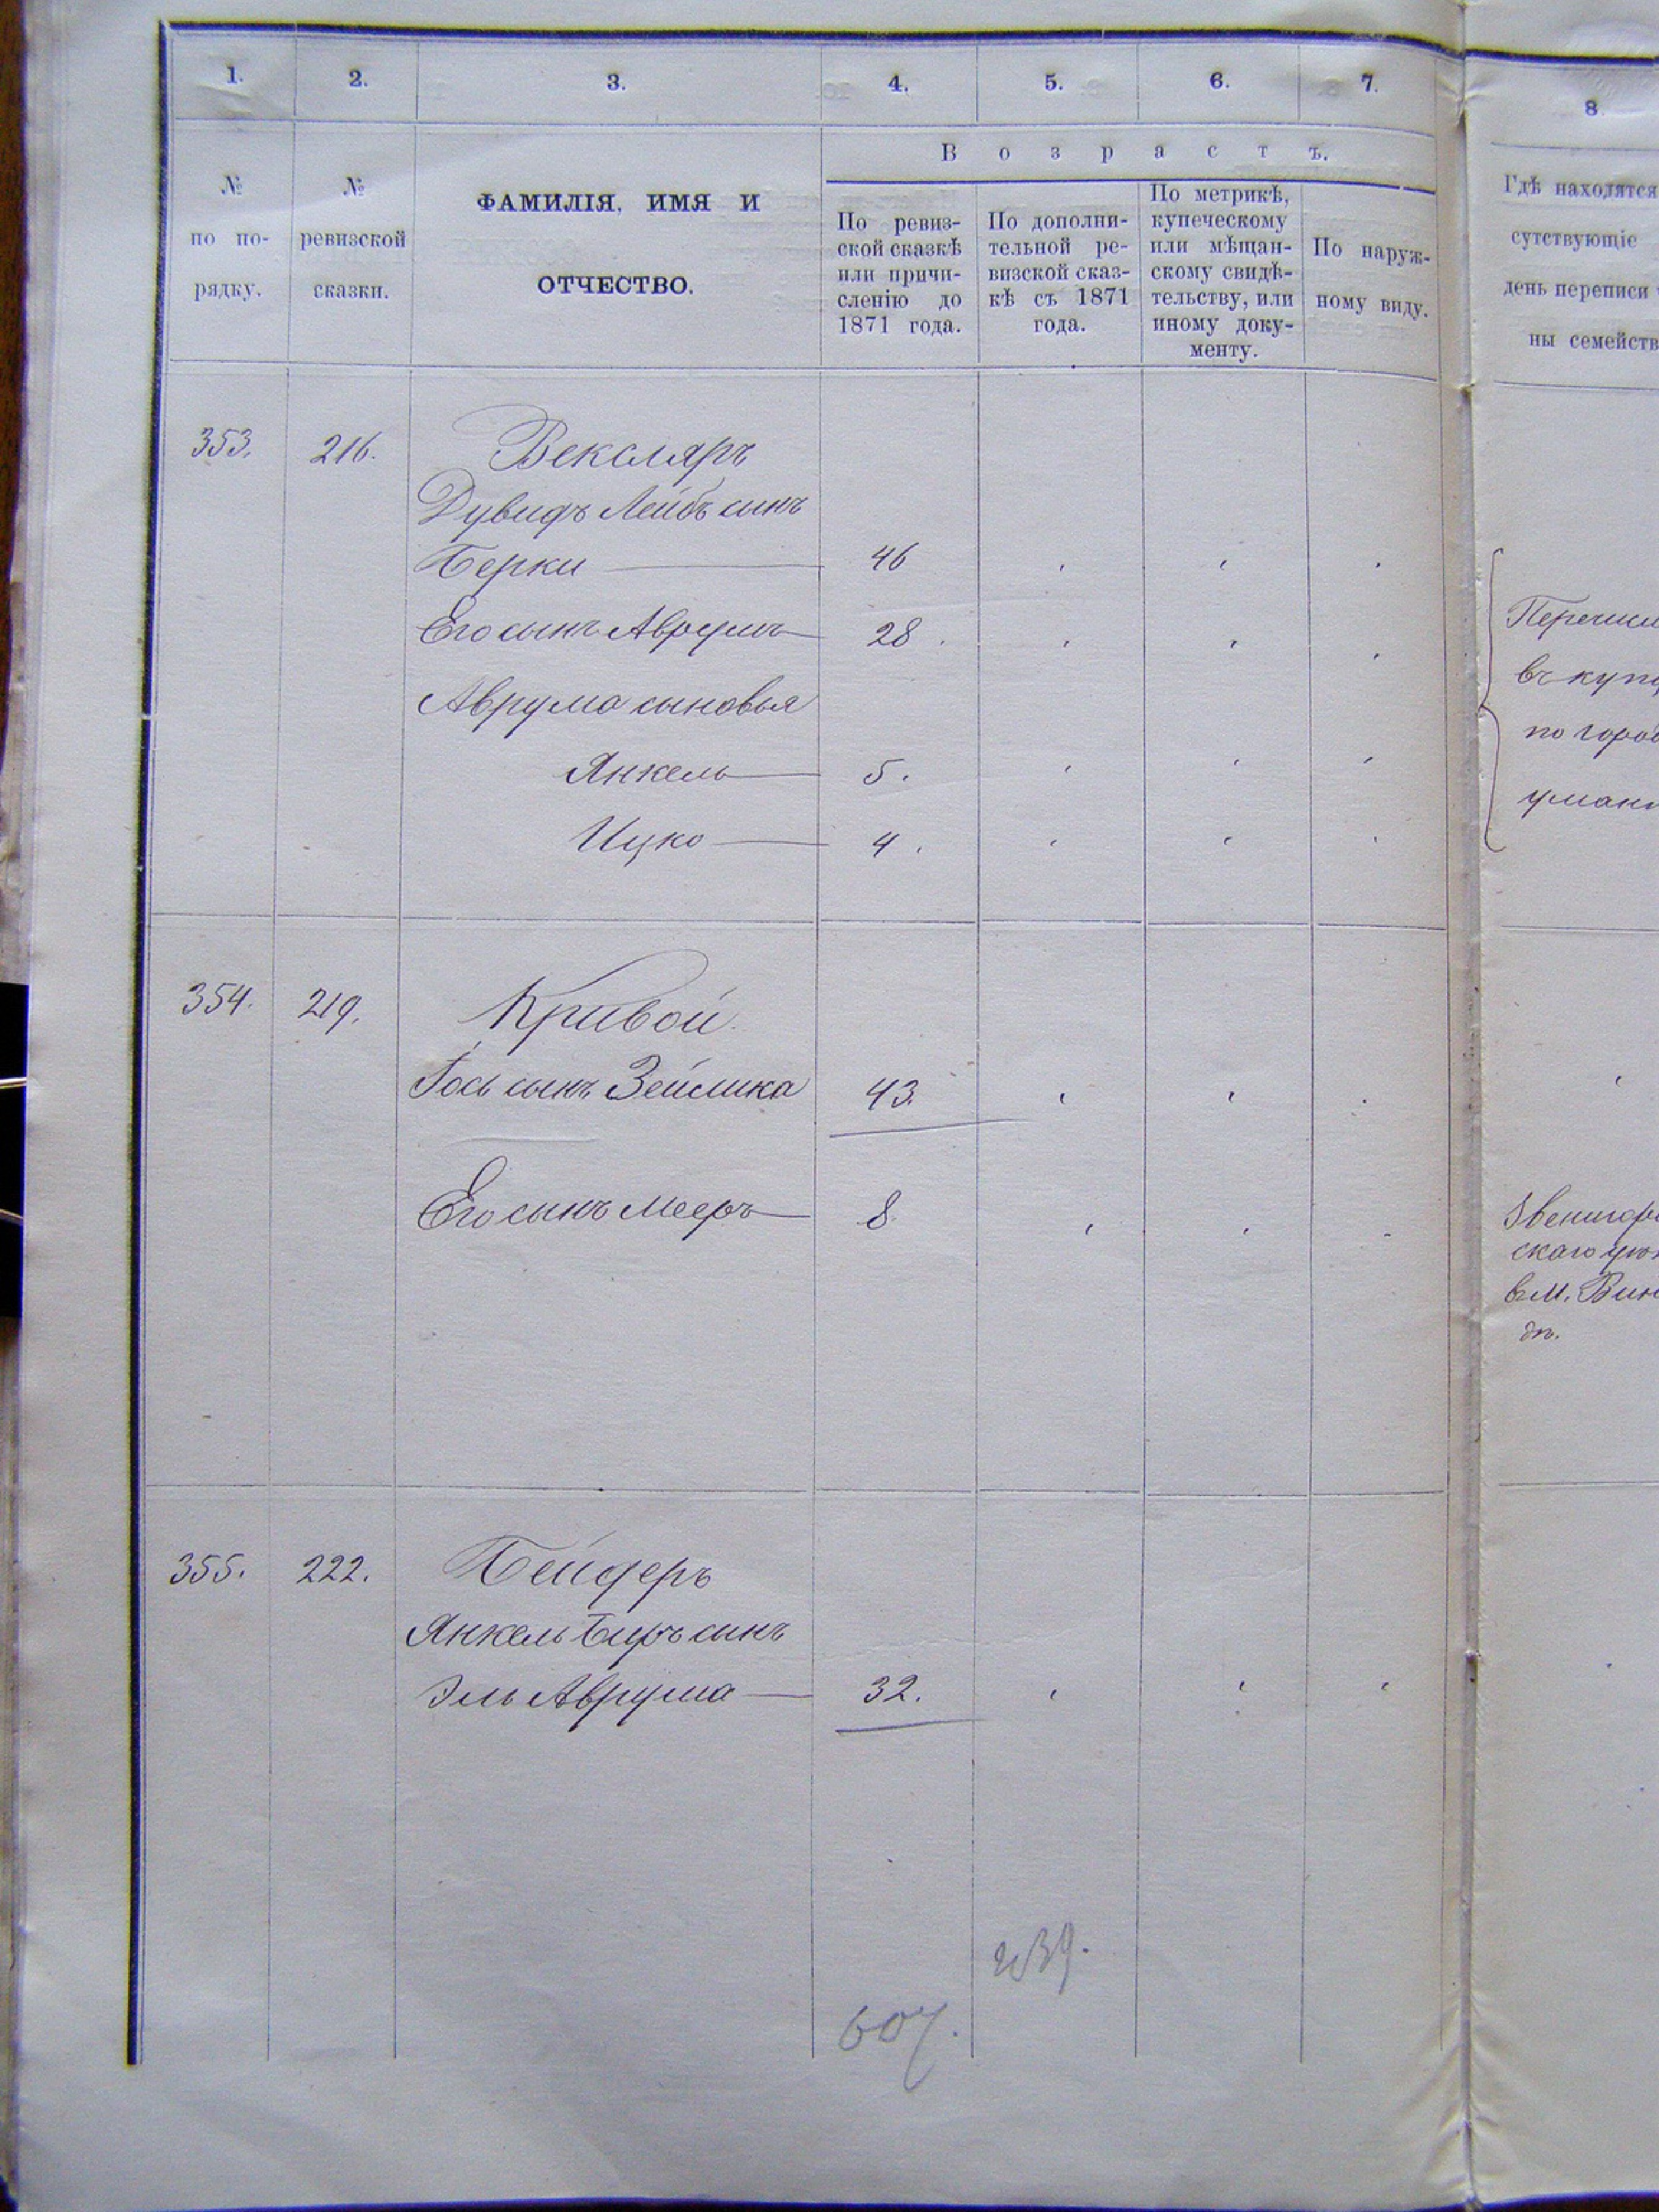 1. 2. 3. 4. 5. 6. 7.
№ по по- рядку.
№ ревизской сказки.
ФАМИЛІЯ, ИМЯ И
ОТЧЕСТВО.
Возрастъ.
По ревиз-
ской сказкѣ
или причи-
сленію до
1871 года.
По дополни-
тельной ре-
визской сказ-
кѣ съ 1871
года.
По метрикѣ,
купеческому
или мѣщан-
скому свидѣ-
тельству, или
иному доку-
менту.
По наруж-
ному виду.
8
Гдѣ находятся
сутствующіе
день переписи
ны семейств
353. 216. Векслярь
Дувидъ Лейбъ сынъ
Берки 46
Его сынъ Аврумъ 28
Аврума сыновья
Янкель 5.
Ицко 4.
Перечисл
въ купц
по город
уман
354. 219. Кривой
Іось сынъ Зейлика 43.
Его сынъ Мееръ 8.
Звенигор
скаго
въ м. Вин
355. 222. Бейдеръ
Янкель Беръ сынъ
Эль Аврума 32.
239.
607.